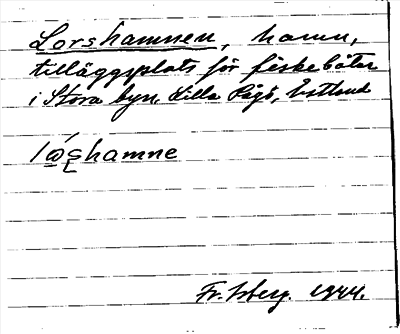 Lorshamnen, hamn,
tilläggsplats för fiskebåtar
i Stora byn, Lilla Rågö, Estland
hamne
Fr. Isberg. 1944.